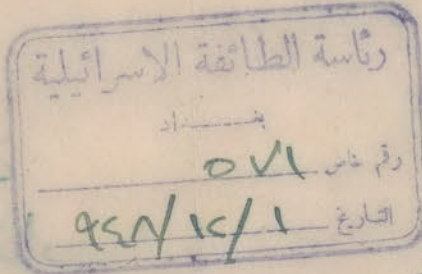 رئاسة الطائفة الاسرائيلية
بغـــداد
رقم خاص ٥٧١
التاريخ ٩٤٨/١٢/١